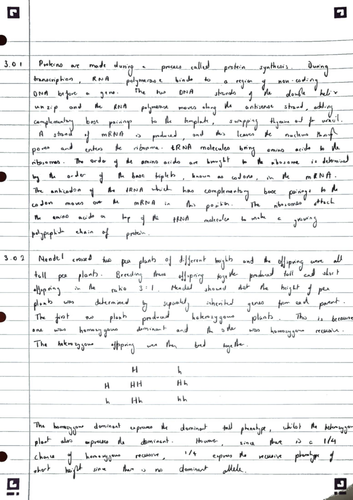 3.01 Proteins are made during a process called protein synthesis. During
transcription, RNA polymerase binds to a region of non-coding
DNA before a gene. The two DNA strands of the double helix
unzip and the RNA polymerase moves along the antisense strand, adding
complementary base pairings to the template, swapping thymine out for uracil.
A strand of mRNA is produced and this leaves the nucleus through
pores and enters the ribosome. tRNA molecules bring amino acids to the
ribosomes. The order of the amino acids are brought to the ribosome is determined
by the order of the base triplets, known as codons, in the mRNA.
The anticodon of the tRNA which has complementary base pairings to the
codon moves over the mRNA in this position. The ribosomes attach
the amino acids on top of the tRNA molecules to make a growing
polypeptide chain of protein.
3.02 Mendel crossed two pea plants of different heights and the offspring were all
tall pea plants. Breeding these offspring together produced tall and short
offspring in the ratio 3:1. Mendel showed that the height of pea
plants was determined by separately inherited genes from each parent.
The first two plants produced heterozygous plants. This is because
one was homozygous dominant and the other was homozygous recessive.
The heterozygous offspring were then bred together.
H h
H HH Hh
h Hh hh
The homozygous dominant expresses the dominant tall phenotype, whilst the heterozygous
plant also expresses the dominant. However, since there is a 1/4
chance of homozygous recessive, 1/4 express the recessive phenotype of
short height since there is no dominant allele.